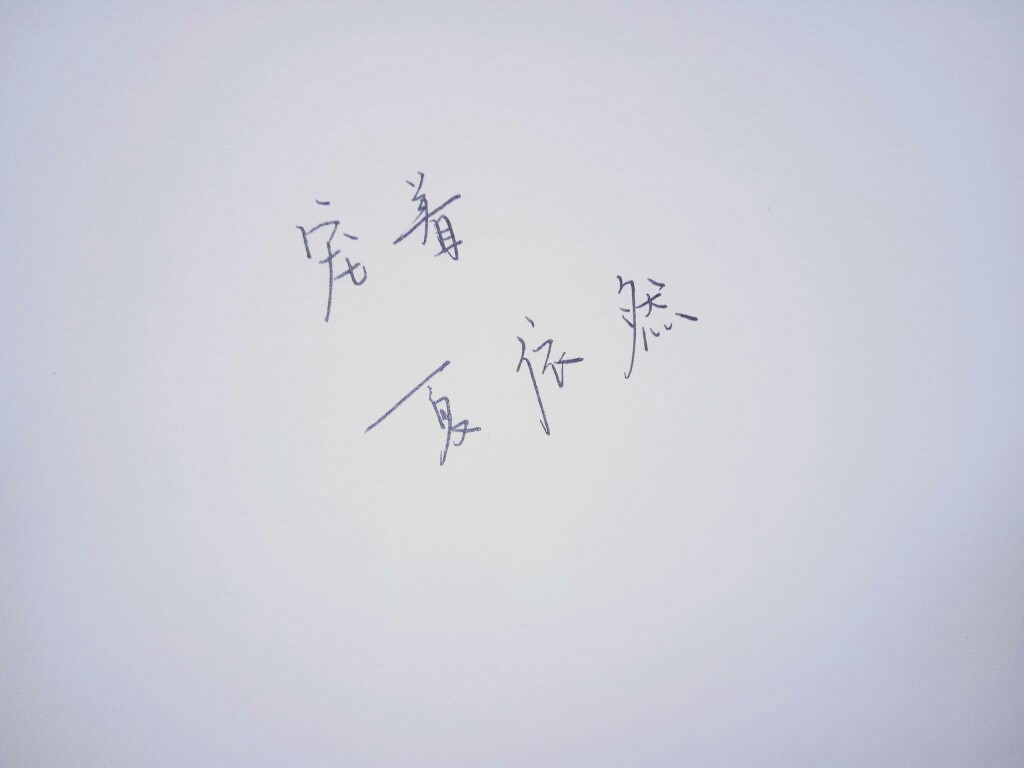 宠着
夏依然